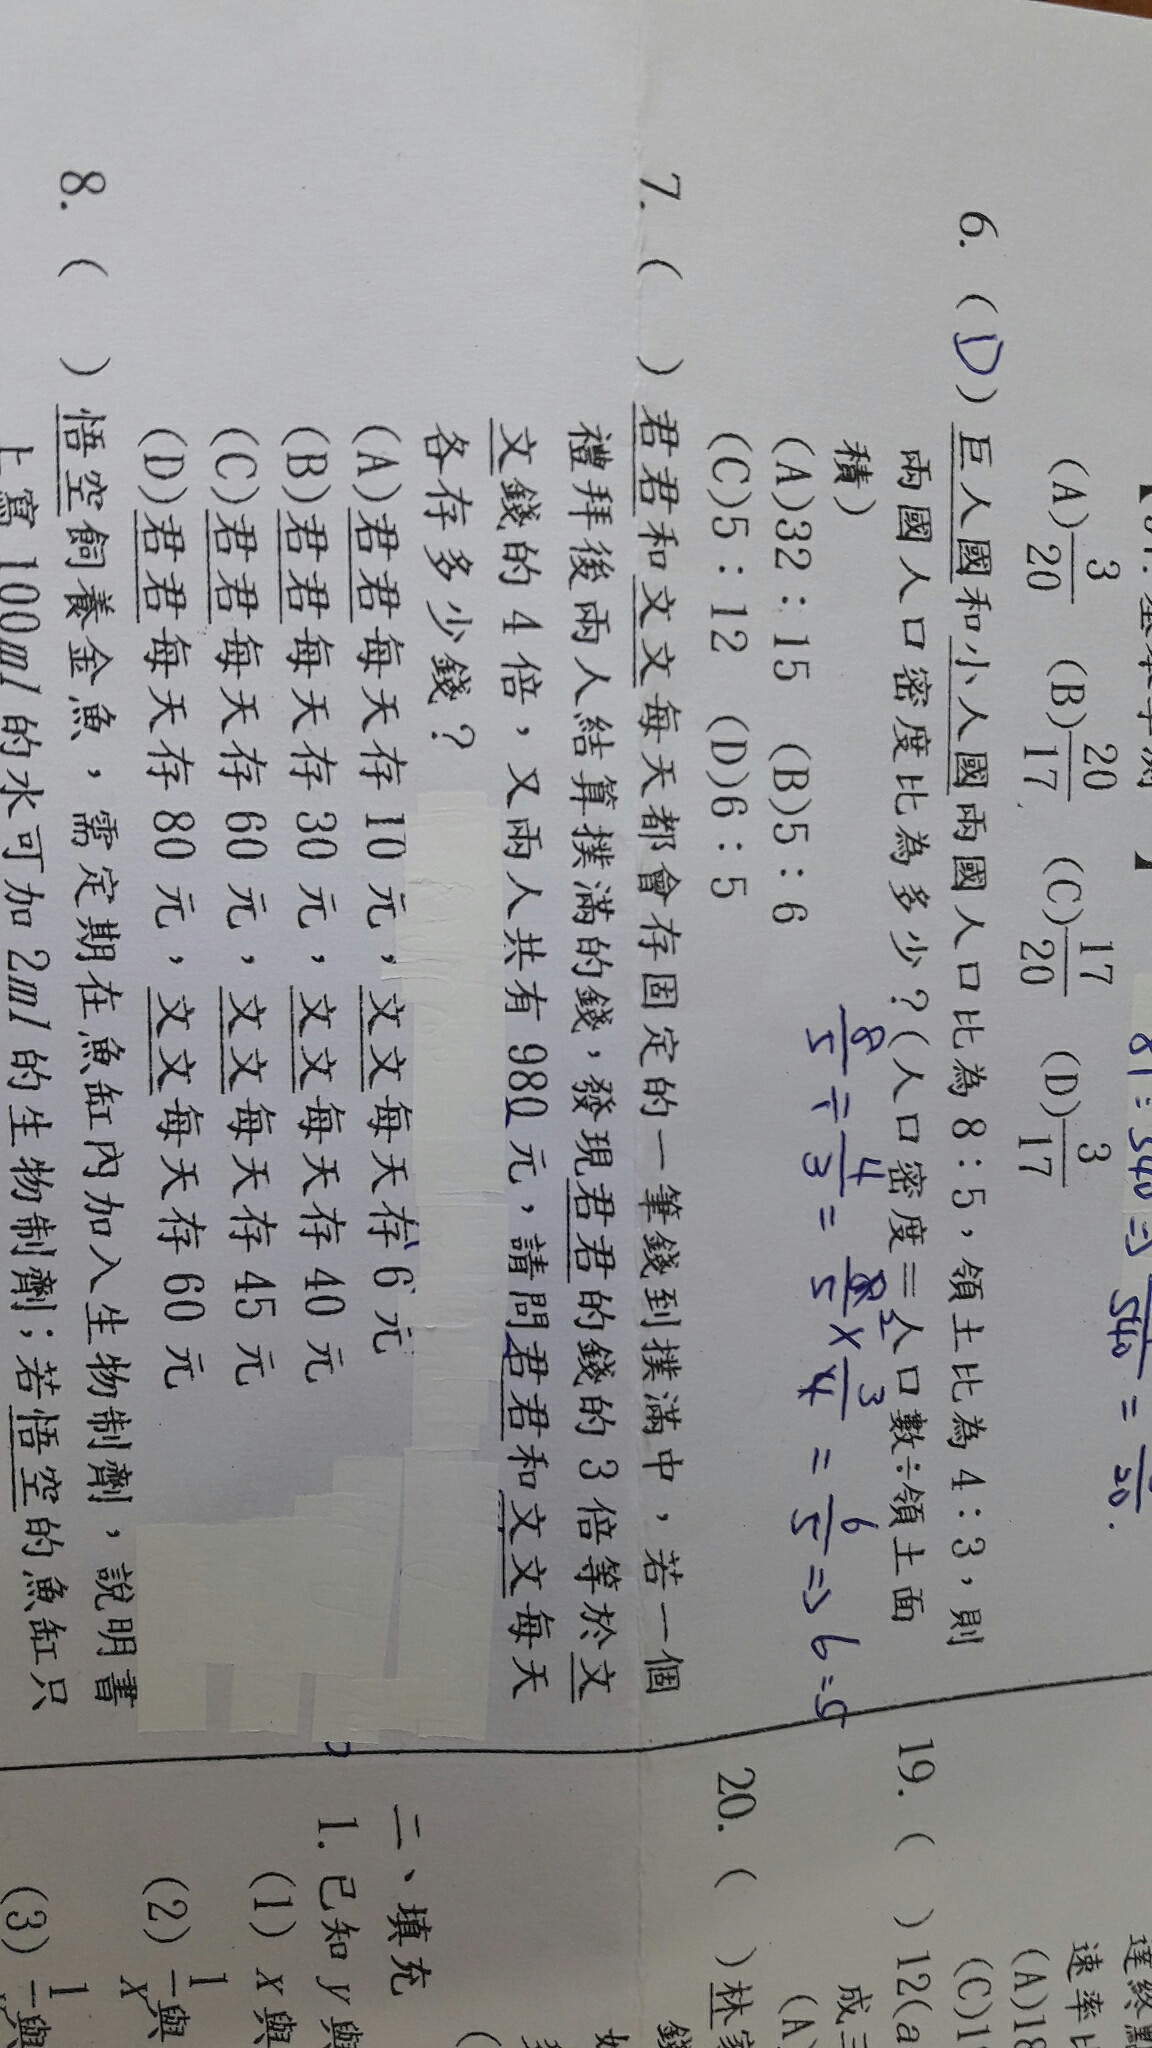 (A)3/20 (B)20/17 (C)17/20 (D)3/17
6. (D) 巨人國和小人國兩國人口比為 8:5，領土比為 4:3，則
兩國人口密度比為多少？(人口密度＝人口數÷領土面
積)
(A)32:15 (B)5:6
(C)5:12 (D)6:5
8/5 ÷ 4/3 = 8/5 × 3/4 = 6/5 => 6:5
7. ( ) 君君和文文每天都會存固定的一筆錢到撲滿中，若一個
禮拜後兩人結算撲滿的錢，發現君君的錢的 3 倍等於文
文錢的 4 倍，又兩人共有 980 元，請問君君和文文每天
各存多少錢？
(A)君君每天存 10 元，文文每天存 6 元
(B)君君每天存 30 元，文文每天存 40 元
(C)君君每天存 60 元，文文每天存 45 元
(D)君君每天存 80 元，文文每天存 60 元
8. ( ) 悟空飼養金魚，需定期在魚缸內加入生物制劑，說明書
上寫 100ml 的水可加 2ml 的生物制劑；若悟空的魚缸只
速率比
(A)18
(C)1
19. ( ) 12(a
成三
(A)
20. ( ) 林家
錢
二、填充
1. 已知 y 與
(1) x 與
(2) 1/x 與
(3)